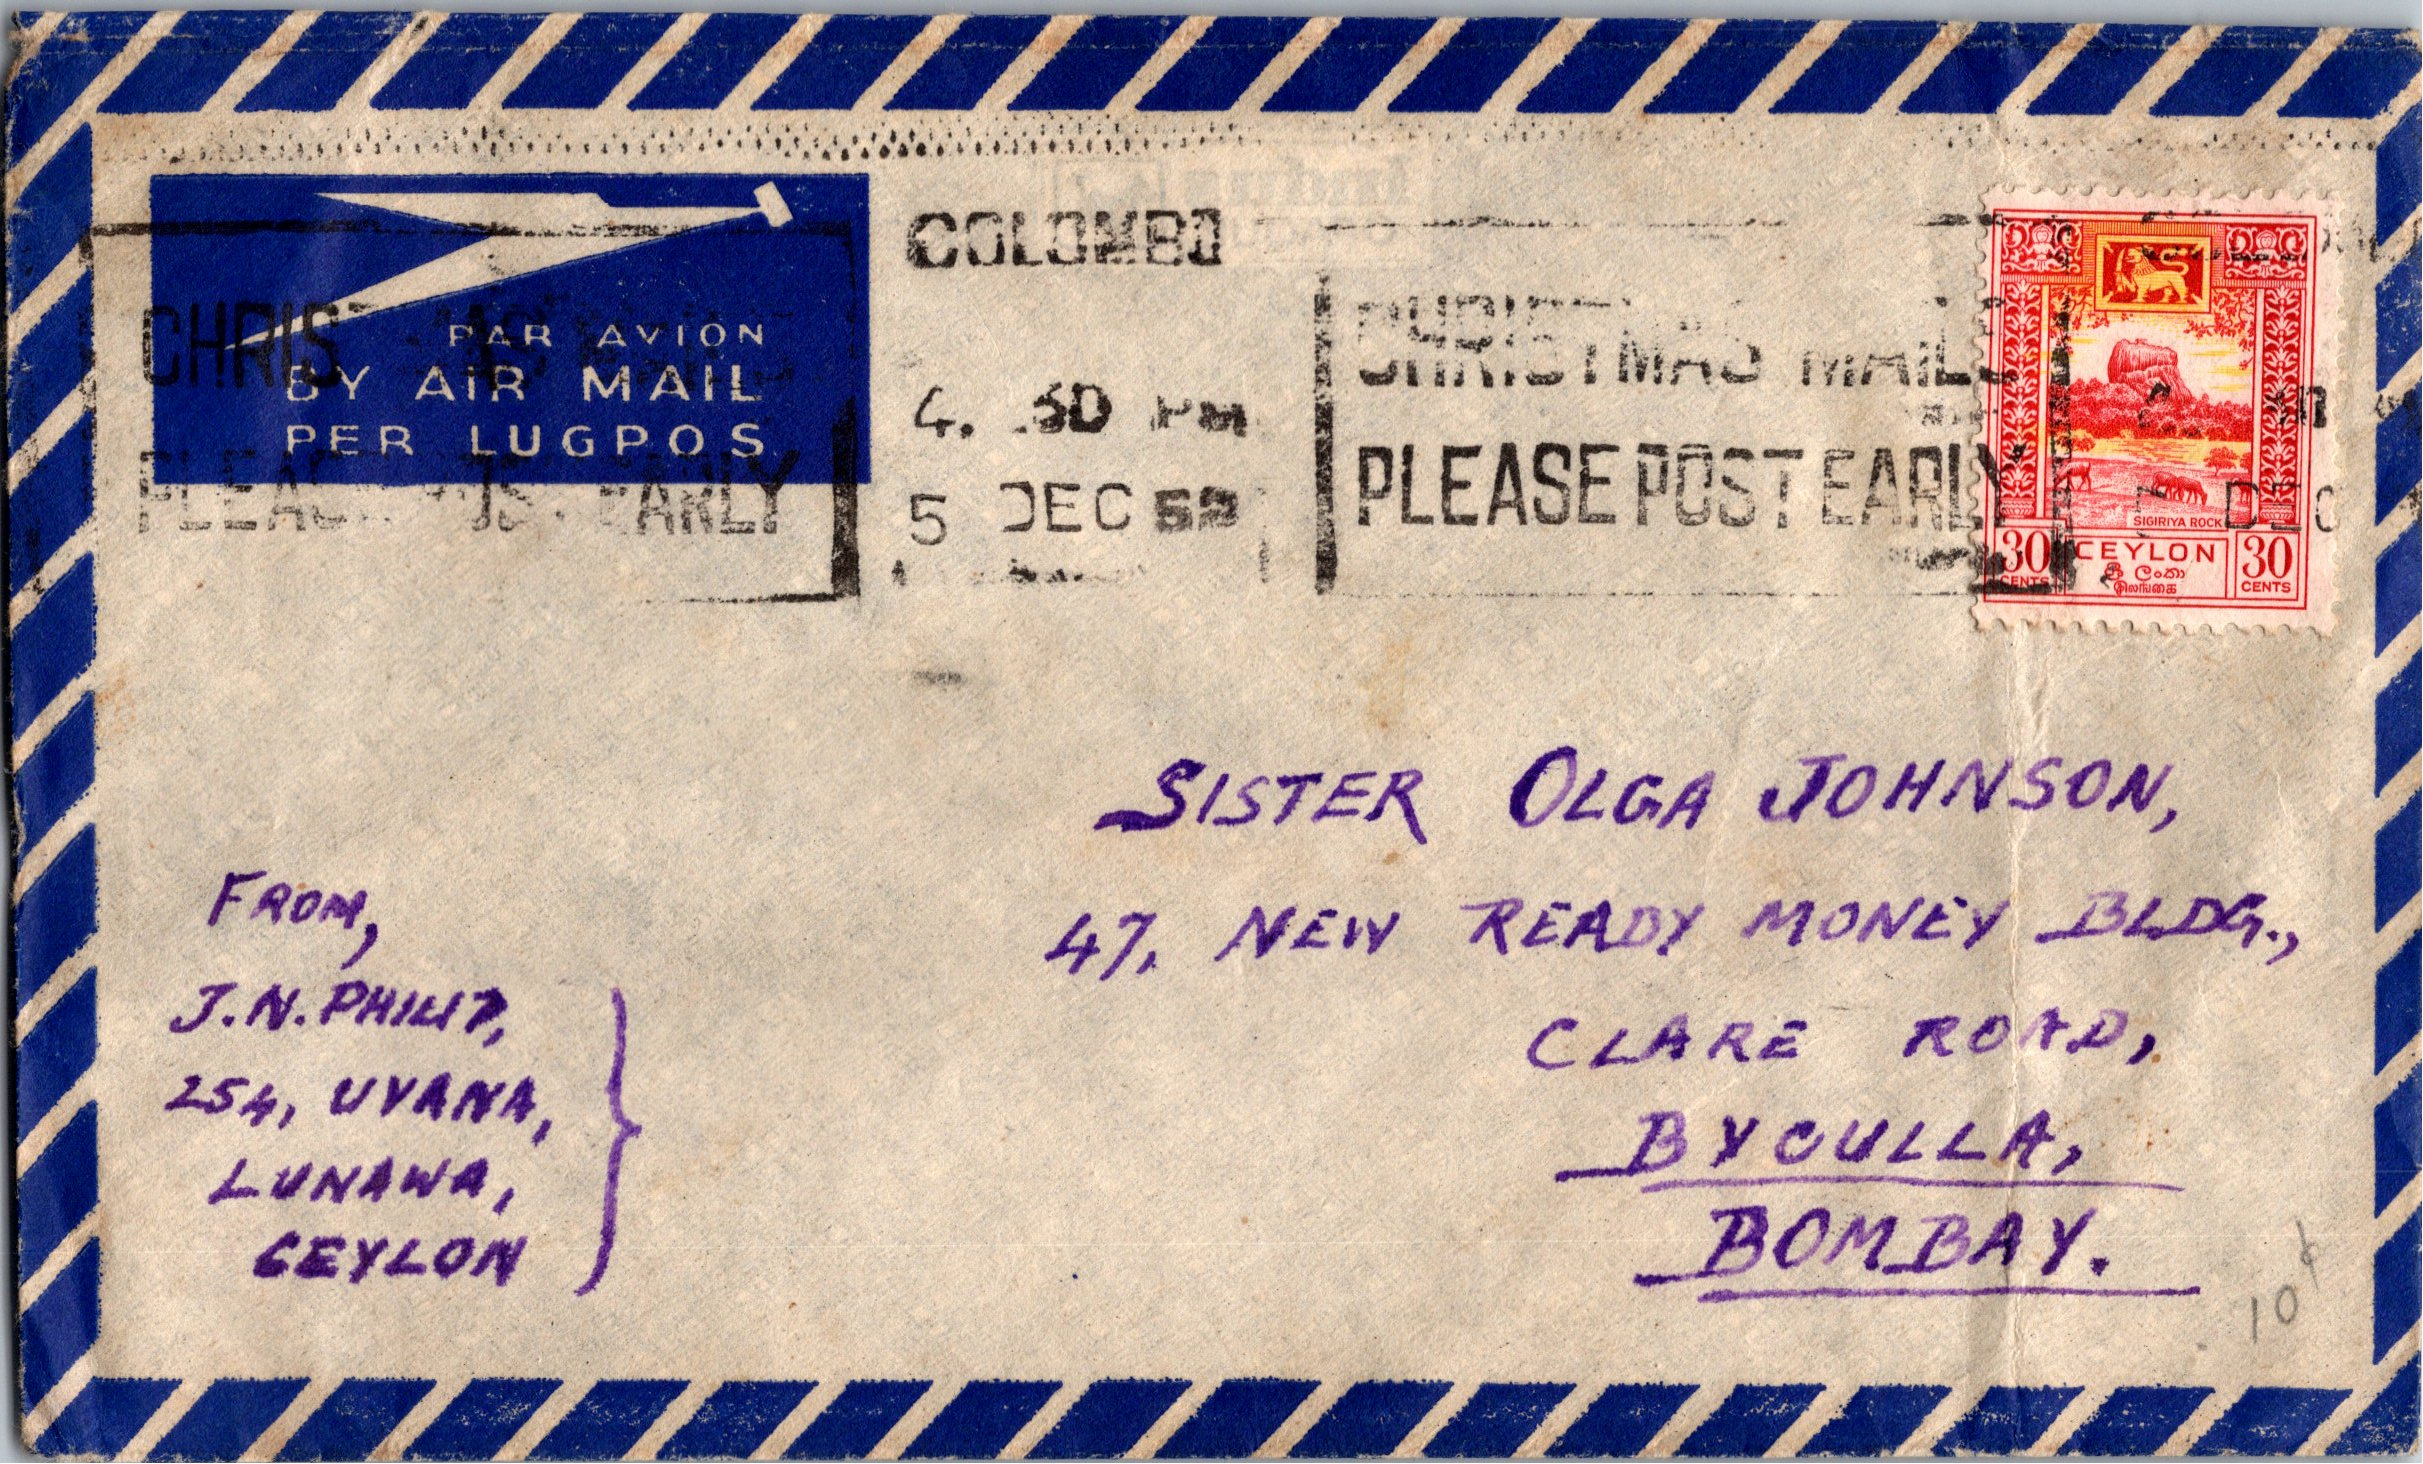 PAR AVION
BY AIR MAIL
PER LUGPOS
COLOMBO
4. 30 PM
5 DEC 52
CHRISTMAS MAILS
PLEASE POST EARLY
CHRISTMAS MAILS
PLEASE POST EARLY
DEC
SIGIRIYA ROCK
30 CEYLON 30
CENTS ශ්‍රී ලංකා CENTS
இலங்கை
SISTER OLGA JOHNSON,
47, NEW READY MONEY BLDG.,
CLARE ROAD,
BYCULLA,
BOMBAY.
FROM,
J.N. PHILIP,
254, UYANA,
LUNAWA,
CEYLON
10